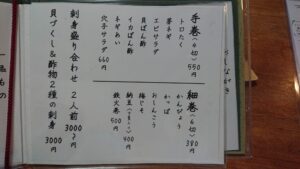 手巻(4切) 550円
トロたく
芽ネギ
エビサラダ
貝ぽん酢
イカぽん酢
ネギあい
穴子サラダ 660円
細巻(6切) 380円
かんぴょう
かっぱ
おしんこう
梅じそ
納豆 400円
鉄火巻 500円
刺身盛り合わせ 2人前 3000円
貝づくし&酢物2種の刺身 3000円